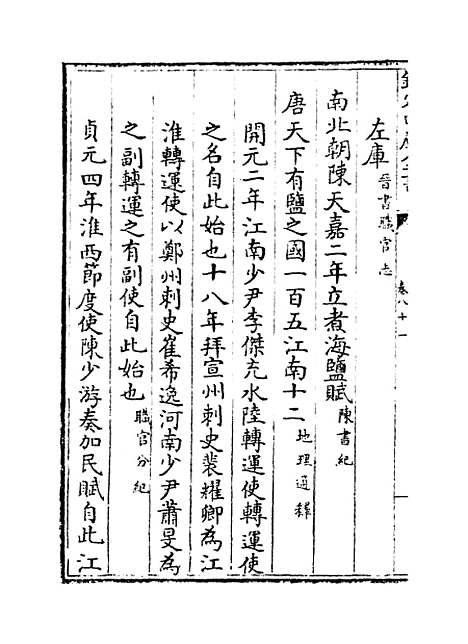 欽定四庫全書
卷八十一
左庫晉書職官志
南北朝陳天嘉二年立煮海鹽賦陳書紀
唐天下有鹽之國一百五江南十二地理通釋
開元二年江南少尹李傑充水陸轉運使轉運使
之名自此始也十八年拜宣州刺史裴耀卿為江
淮轉運使以鄭州刺史崔希逸河南少尹蕭旻為
之副轉運之有副使自此始也職官分紀
貞元四年淮西節度使陳少游奏加民賦自此江